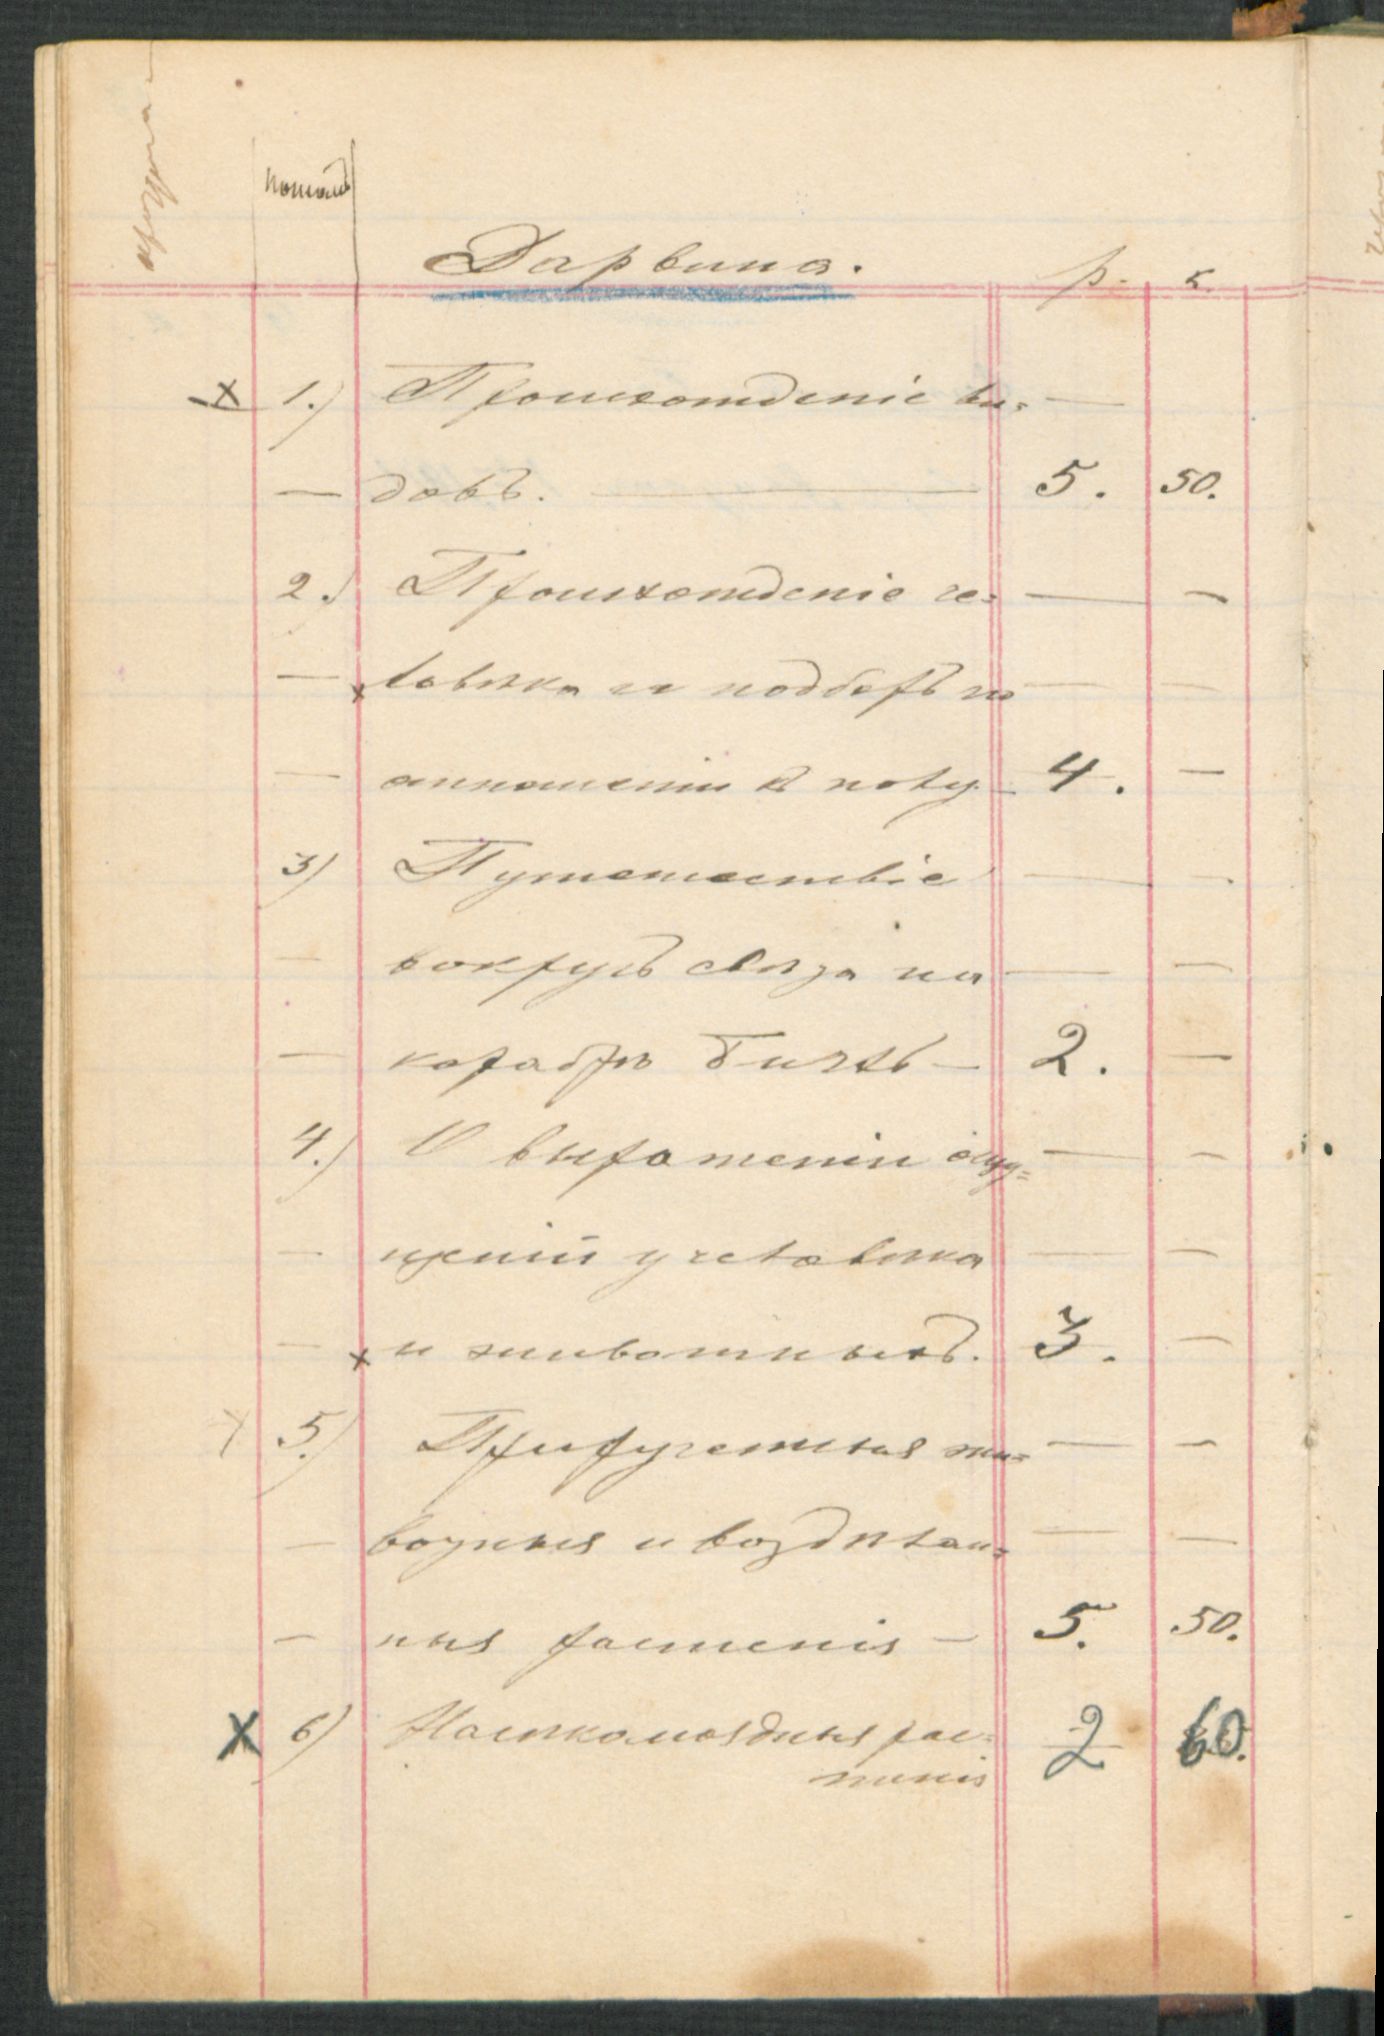 Дарвина.
р. к.
х 1.) Происхожденіе ви=
— довъ. — 5. 50.
2.) Происхожденіе че=
— х ловѣка и подборъ по
— отношенію къ полу — 4. —
3) Путешествіе
— вокругъ свѣта на
— кораблѣ Бигль — 2. —
4.) О выраженіи ощу=
— щеній у человѣка
— х и животныхъ. 3. —
х 5.) Прирученныя жи=
— вотныя и воздѣлан=
— ныя растенія — 5. 50.
х 6) Насѣкомоядныя рас= 2 60.
тенія